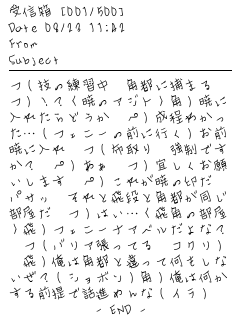 受信箱 [001/500]
Date 08/23 11:42
From
Subject
つ(技の練習中 角都に捕まる
つ)!?て(暁のアジト)角)暁に
入れたらどうか ペ)成程わかっ
た…(フェニーの前に行く)お前
暁に入れ つ(師取り 強制です
かて ペ)あぁ つ)宜しくお願
いします ペ)これが暁の印だ
パサッ それと飛段と角都が同じ
部屋だ つ)はい…(飛角の部屋
)飛)フェニーナアベルだよなて
つ(バリア張ってる コクリ)
飛)俺は角都と違って何もしな
いぜて(ショボン)角)俺は何か
する前提で話進めんな(イラ)
- END -